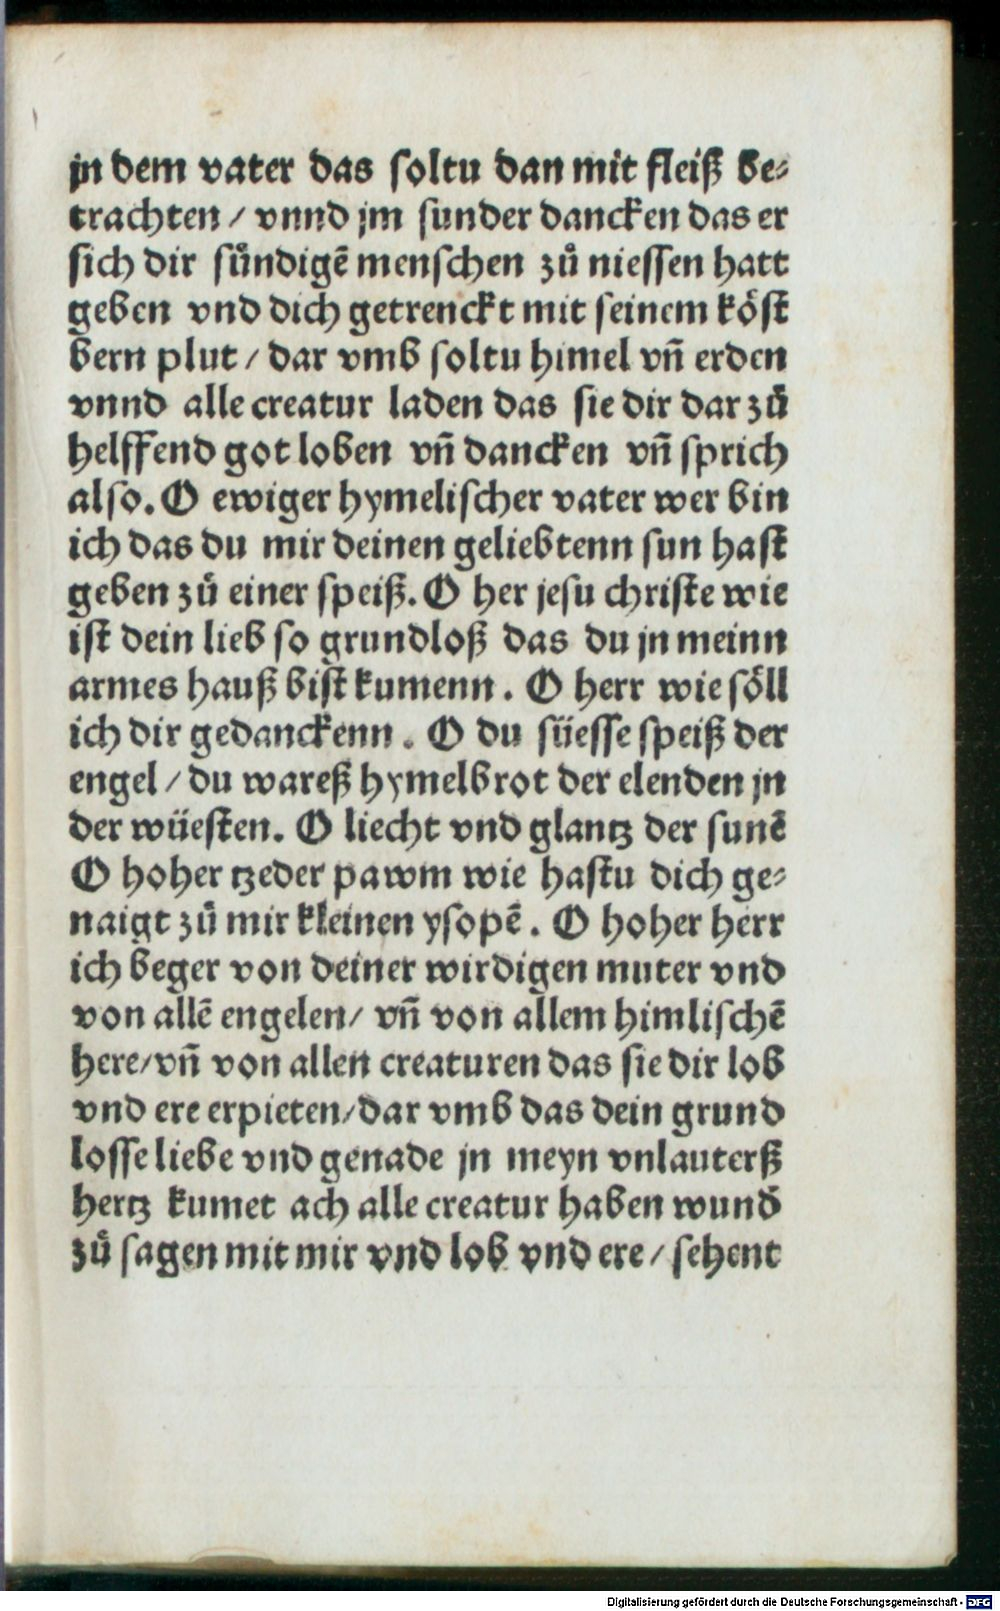 jn dem vater das soltu dan mit fleiß be-
trachten / vnnd jm sunder dancken das er
sich dir sündigē menschen zů niessen hatt
geben vnd dich getrenckt mit seinem köst
bern plut / dar vmb soltu himel vn̄ erden
vnnd alle creatur laden das sie dir dar zů
helffend got loben vn̄ dancken vn̄ sprich
also. O ewiger hymelischer vater wer bin
ich das du mir deinen geliebtenn sun hast
geben zů einer speiß. O her jesu christe wie
ist dein lieb so grundloß das du jn meinn
armes hauß bist kumenn. O herr wie söll
ich dir gedanckenn. O du süesse speiß der
engel / du wareß hymelbrot der elenden jn
der wüesten. O liecht vnd glantz der sunē
O hoher tzeder pawm wie hastu dich ge-
naigt zů mir kleinen ysopē. O hoher herr
ich beger von deiner wirdigen muter vnd
von allē engelen / vn̄ von allem himlischē
here / vn̄ von allen creaturen das sie dir lob
vnd ere erpieten / dar vmb das dein grund
losse liebe vnd genade jn meyn vnlauterß
hertz kumet ach alle creatur haben wund̄
zů sagen mit mir vnd lob vnd ere / sehent
Digitalisierung gefördert durch die Deutsche Forschungsgemeinschaft - DFG